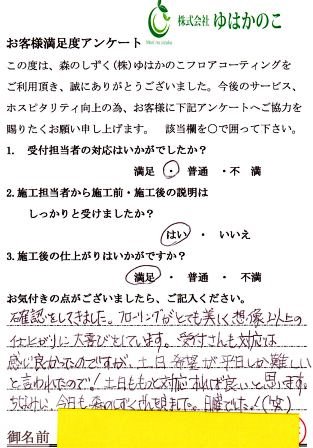 株式会社 ゆはかのこ
お客様満足度アンケート
この度は、森のしずく(株)ゆはかのこフロアコーティングを
ご利用頂き、誠にありがとうございました。今後のサービス、
ホスピタリティ向上の為、お客様に下記アンケートへご協力を
賜りたくお願い申し上げます。 該当欄を〇で囲って下さい。
1. 受付担当者の対応はいかがでしたか?
満足 ・ 普通 ・不 満
2.施工担当者から施工前・施工後の説明は
しっかりと受けましたか?
はい ・ いいえ
3.施工後の仕上がりはいかがですか?
満足 ・ 普通 ・ 不満
お気付きの点がございましたら、ご記入ください。
確認をしてきました。フローリングがとても美しく想像以上の
仕上がりに大喜びとしています。受付さんも対応は
感じ良かったのですが、土日希望が平日しか難しい
と言われたので!土日ももっと対応すれば良いと思います。
ちなみに、今日も森のしずくさん頼ました。日曜でした!(笑)
御名前